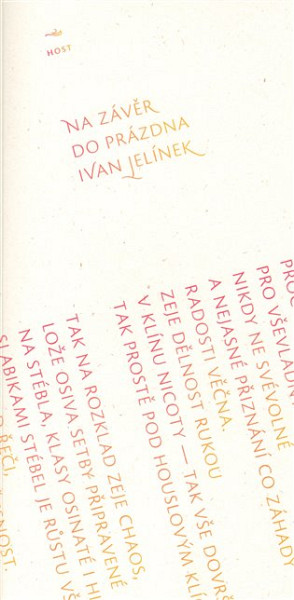 HOST
NA ZÁVĚR
DO PRÁZDNA
IVAN JELÍNEK
PRO VŠEVLÁDN
NIKDY NE SVÉVOLNÉ
A NEJASNÉ PŘIZNÁNÍ CO ZÁHADY
RADOSTI VĚČNA.
ZEJE DĚLNOST RUKOU
V KLÍNU NICOTY — TAK VŠE DOVRŠ
TAK PROSTĚ POD HOUSLOVÝM KLÍ
TAK NA ROZKLAD ZEJE CHAOS,
LOŽE OSIVA SETBY PŘIPRAVENÉ
NA STÉBLA, KLASY OSINATÉ I HI
SLABIKAMI STÉBEL JE RŮSTU VŠ
ŘEČI,